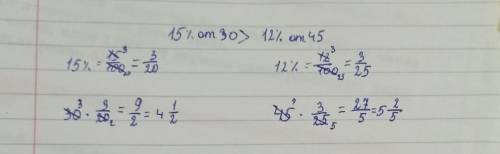 15% от 30 > 12% от 45
15% = 15³/100₂₀ = 3/20
12% = 12³/100₂₅ = 3/25
30³ · 3/20₂ = 9/2 = 4 1/2
45⁹ · 3/25₅ = 27/5 = 5 2/5